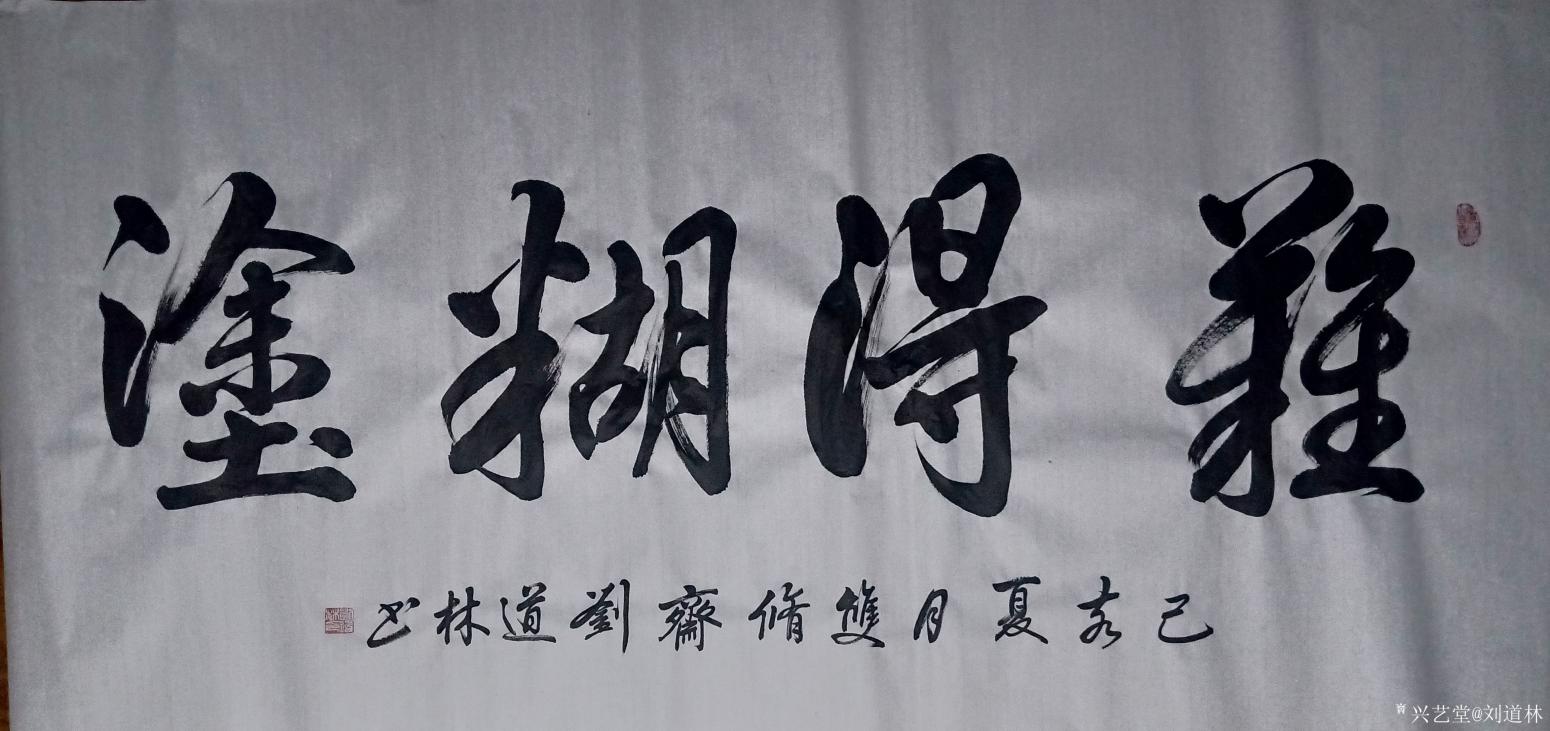 難得糊塗
己亥夏月雙脩齋劉道林书
兴艺堂@刘道林